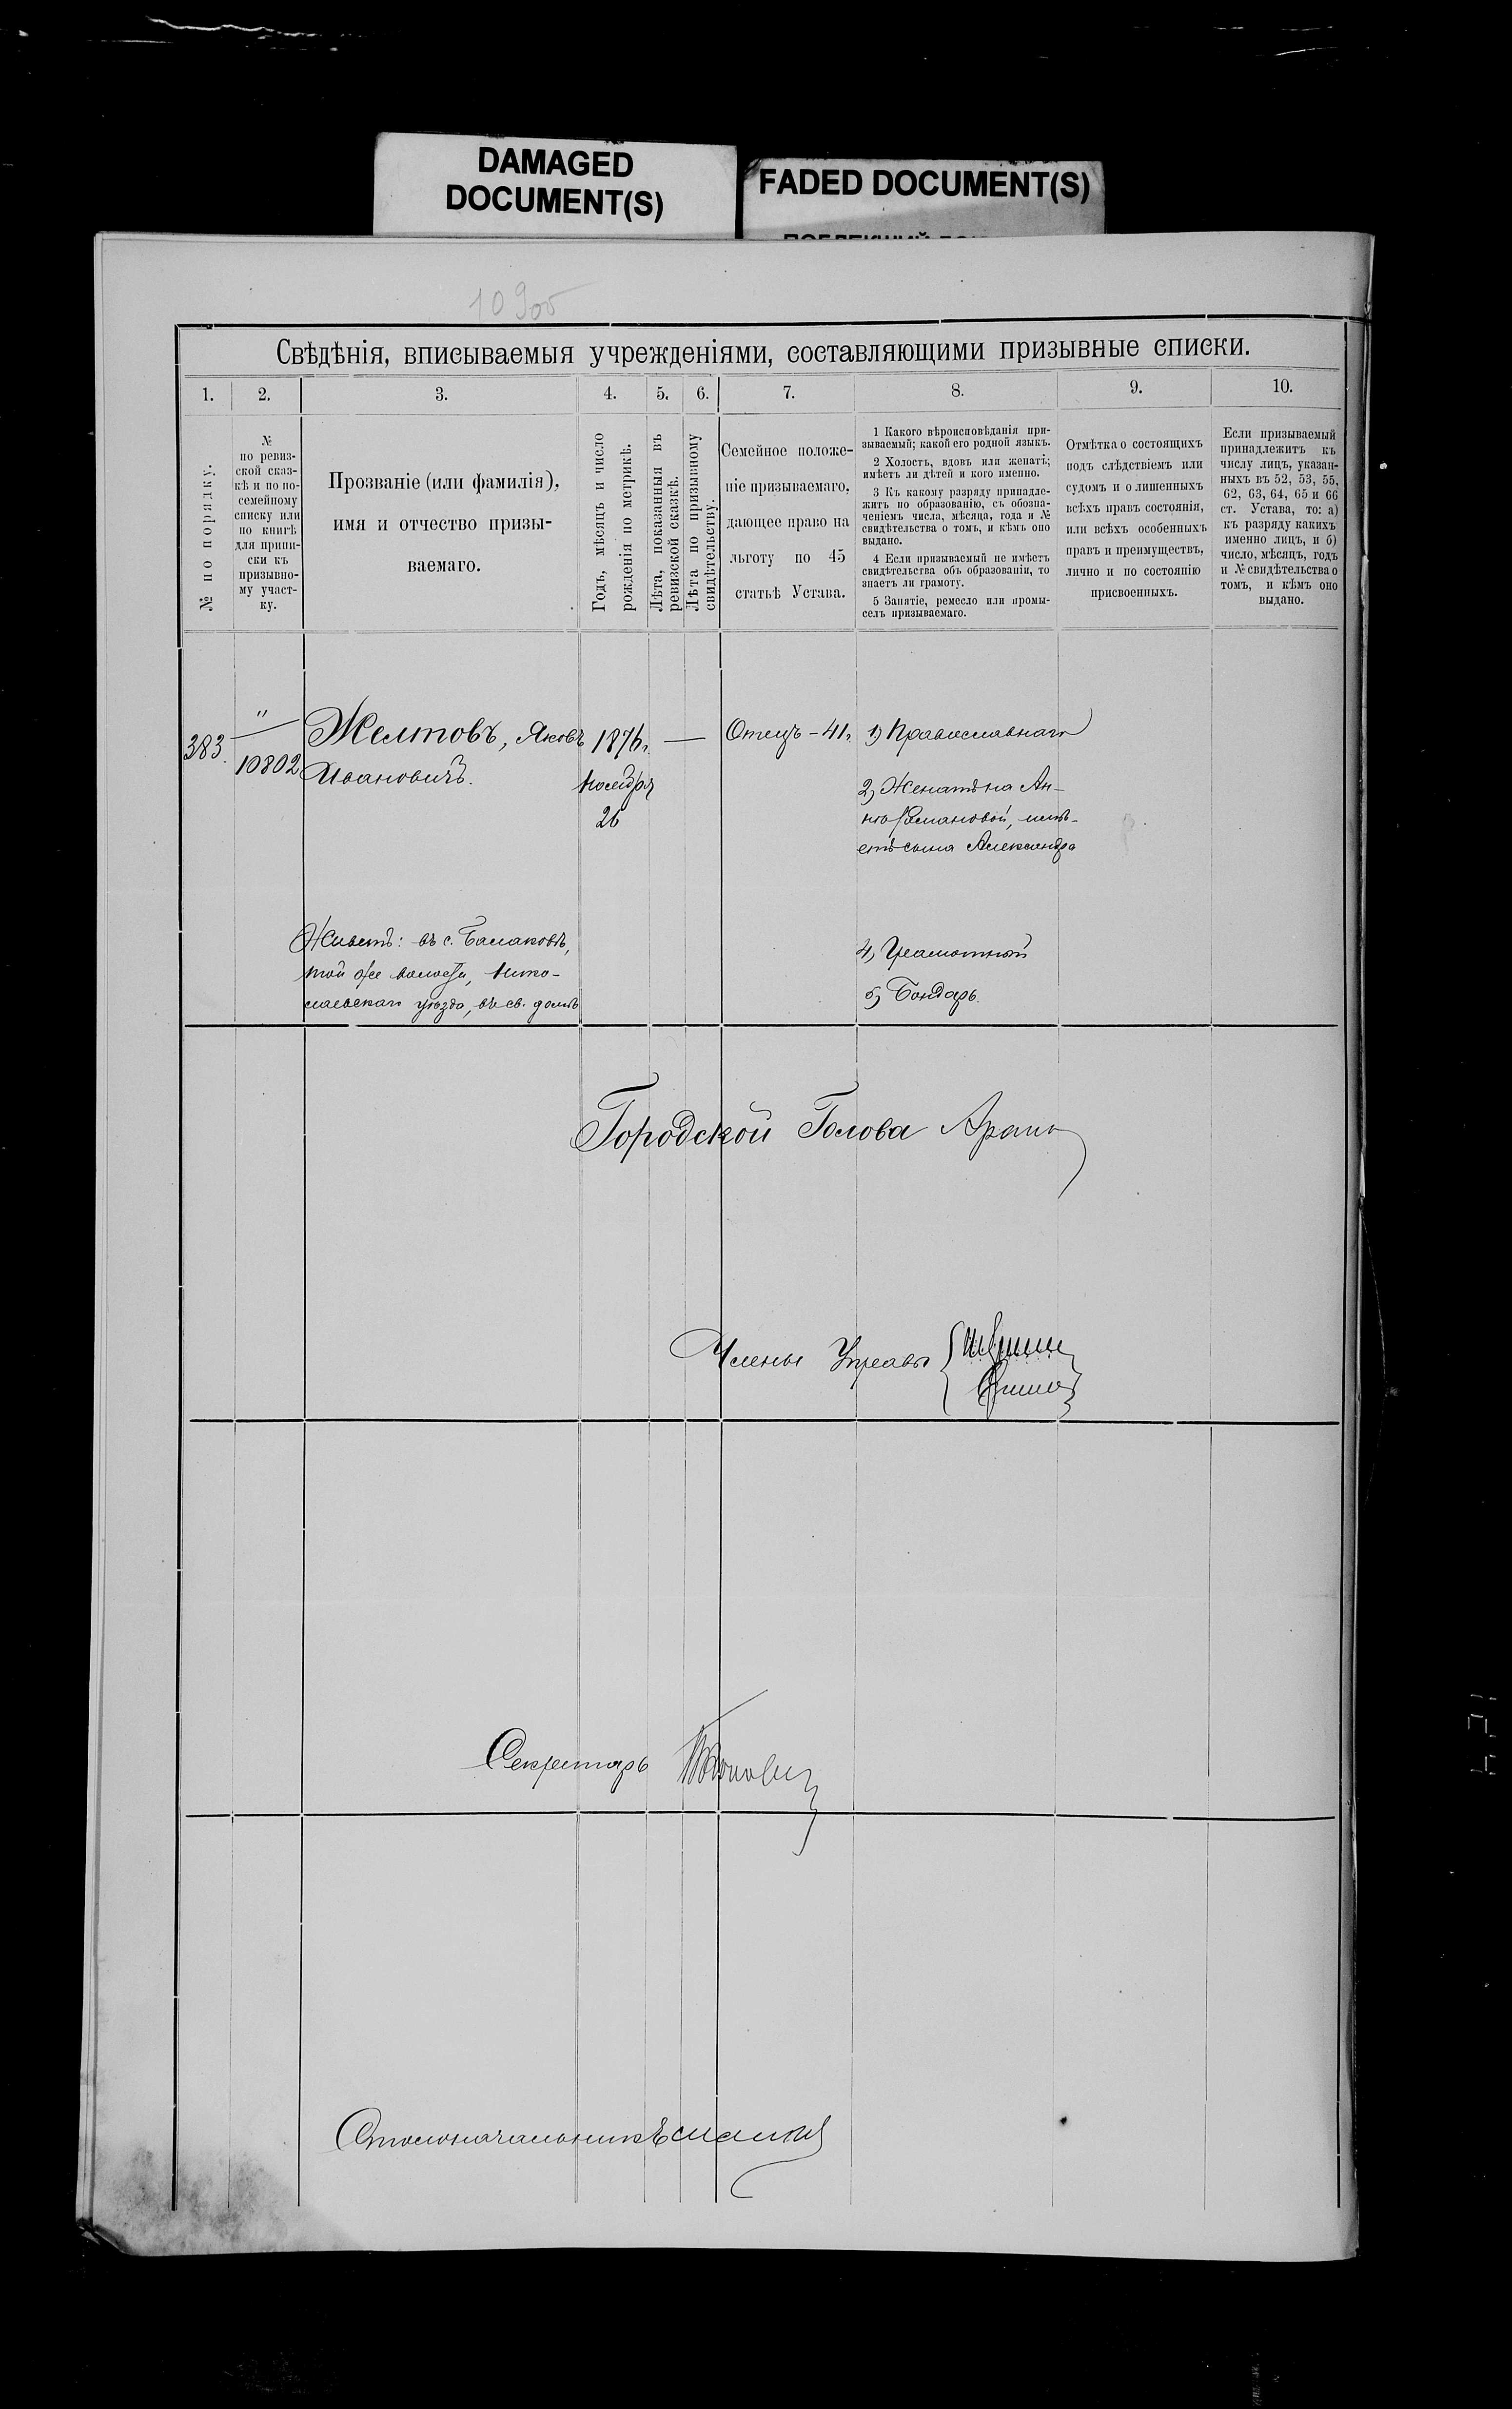 DAMAGED
DOCUMENT(S)
FADED DOCUMENT(S)
Свѣдѣнія, вписываемыя учрежденіями, составляющими призывные списки.
1.
2.
3.
4.
5.
6.
7.
8.
9.
10.
№ по порядку.
№
по ревиз-
ской сказ-
кѣ и по по-
семейному
списку или
по книгѣ
для припи-
ски къ
призывно-
му участ-
ку.
Прозваніе (или фамилія),
имя и отчество призы-
ваемаго.
Годъ, мѣсяцъ и число
рожденія по метрикѣ.
Лѣта, показанныя въ
ревизской сказкѣ.
Лѣта по призывному
свидѣтельству.
Семейное положе-
ніе призываемаго,
дающее право на
льготу по 45
статьѣ Устава.
1 Какого вѣроисповѣданія при-
зываемый; какой его родной языкъ.
2 Холостъ, вдовъ или женатъ;
имѣетъ ли дѣтей и кого именно.
3 Къ какому разряду принадле-
житъ по образованію, съ обозна-
ченіемъ числа, мѣсяца, года и №
свидѣтельства о томъ, и кѣмъ оно
выдано.
4 Если призываемый не имѣетъ
свидѣтельства объ образованіи, то
знаетъ ли грамоту.
5 Занятіе, ремесло или промы-
селъ призываемаго.
Отмѣтка о состоящихъ
подъ слѣдствіемъ или
судомъ и о лишенныхъ
всѣхъ правъ состоянія,
или всѣхъ особенныхъ
правъ и преимуществъ,
лично и по состоянію
присвоенныхъ.
Если призываемый
принадлежитъ къ
числу лицъ, указан-
ныхъ въ 52, 53, 55,
62, 63, 64, 65 и 66
ст. Устава, то: а)
къ разряду какихъ
именно лицъ, и б)
число, мѣсяцъ, годъ
и № свидѣтельства о
томъ, и кѣмъ оно
выдано.
383.
"
10802
Желтовъ, Яковъ
Ивановичъ.
1876 г.
Ноября
26
—
Отецъ – 41 г.
1) Православнаго
2) Женатъ на Ан-
нѣ Романовой, имѣ-
етъ сына Александра
Живетъ: въ с. Балаковѣ,
той же волости, Нико-
лаевскаго уѣзда, въ св. домѣ
4) Грамотный
5) Бондарь.
Городской Голова
Члены Управы
Секретарь
Столоначальникъ